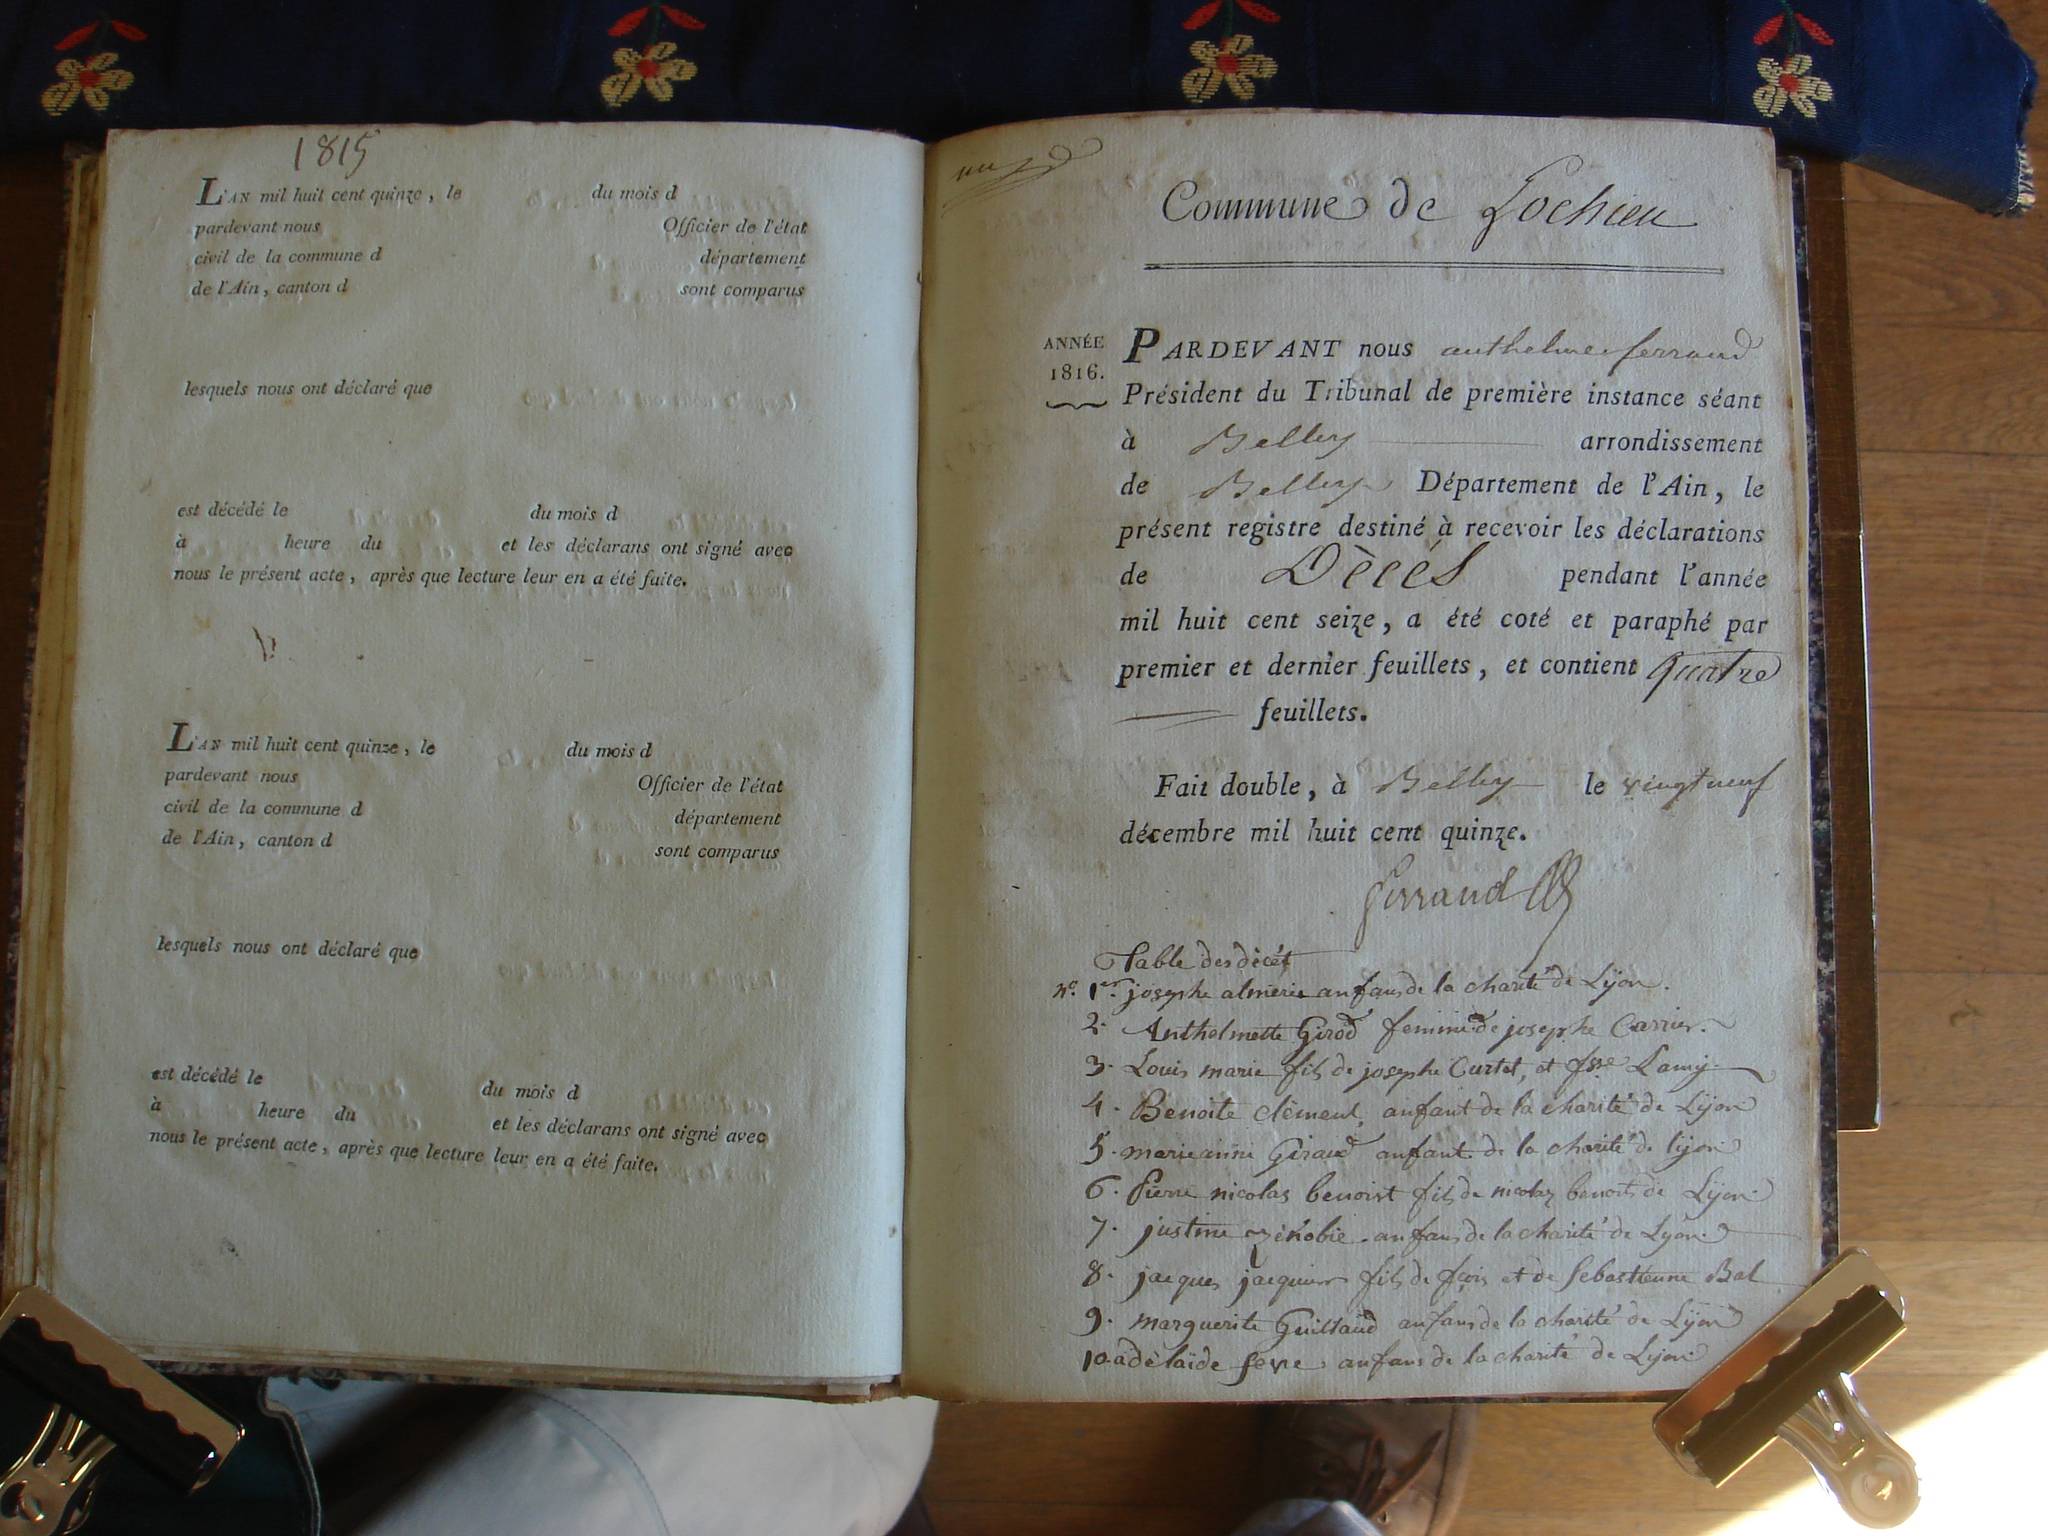 1815
L'AN mil huit cent quinze, le du mois d
pardevant nous Officier de l'état
civil de la commune d département
de l'Ain, canton d sont comparus
lesquels nous ont déclaré que
est décédé le du mois d
à heure du et les déclarans ont signé avec
nous le présent acte, après que lecture leur en a été faite.
L'AN mil huit cent quinze, le du mois d
pardevant nous Officier de l'état
civil de la commune d département
de l'Ain, canton d sont comparus
lesquels nous ont déclaré que
est décédé le du mois d
à heure du et les déclarans ont signé avec
nous le présent acte, après que lecture leur en a été faite.
Commune de Lochieu
ANNÉE
1816.
PARDEVANT nous anthelme ferrand
Président du Tribunal de première instance séant
à Belley arrondissement
de Belley Département de l'Ain, le
présent registre destiné à recevoir les déclarations
de Dècés pendant l'année
mil huit cent seize, a été coté et paraphé par
premier et dernier feuillets, et contient quatre
feuillets.
Fait double, à Belley le vingt neuf
décembre mil huit cent quinze.
Ferrand
Table des dècét
n.º 1er. josephe almeric anfans de la charité de Lÿon.
2. Anthelmette Girod femme de josephe Carrier.
3. Louis marie fils de josephe Curtet, et fse Lamy.
4. Benoite clèment, anfant de la charité de Lÿon
5. marieanne Giraud anfant de la charité de lÿon
6. Pierre nicolas benoist fils de nicolas benoit de Lÿon
7. justine zénobie anfans de la charité de Lÿon
8. jacques jacquier fils de fçois et de Sebastienne Bal
9. marguerite Guillaud anfans de la charité de Lÿon
10. adèlaïde fevre anfans de la charité de Lÿon